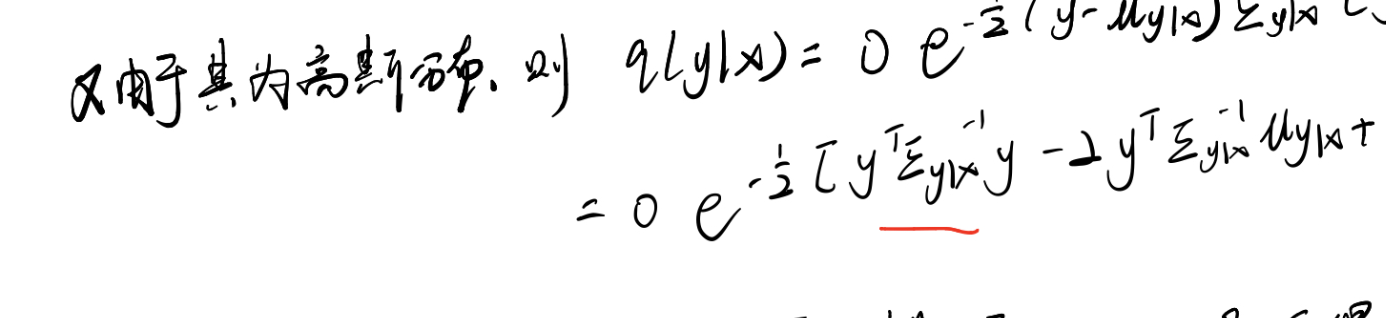 又由于其为高斯分布、则 q(y|x) = 0 e^{-\frac{1}{2}(y-μ_{y|x}) Σ_{y|x}
= 0 e^{-\frac{1}{2}[y^T Σ_{y|x}^{-1} y - 2 y^T Σ_{y|x}^{-1} μ_{y|x} +